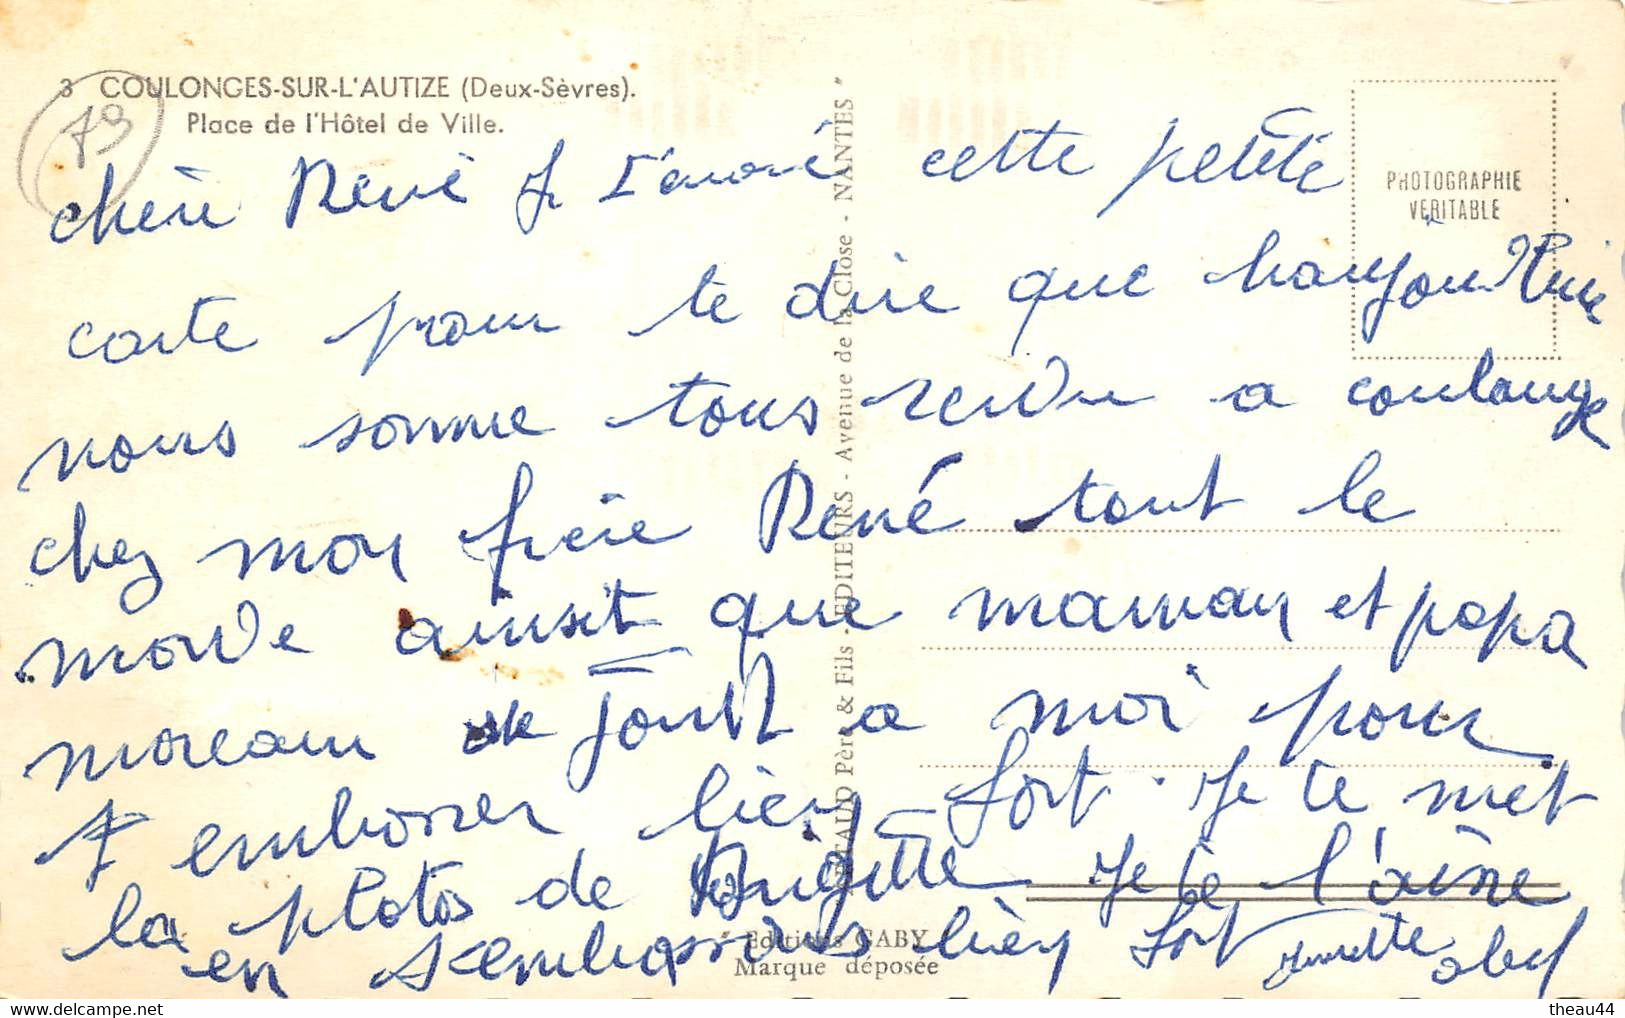 3 COULONGES-SUR-L'AUTIZE (Deux-Sèvres).
Place de l'Hôtel de Ville.
79
PHOTOGRAPHIE
VÉRITABLE
ARTAUD Père & Fils - EDITEURS - Avenue de la Close - NANTES "
chéri René je t'envoi cette petite
carte pour te dire que
nous somme tous rendu a coulange
chez mon frère René tout le
monde ainsit que maman et papa
moreau se joint a moi pour
t embrasser bien fort. Je te met
la photos de Brigitte Je te l'aisse
en t'embrassas bien fort
" Editions GABY "
Marque déposée
theau44